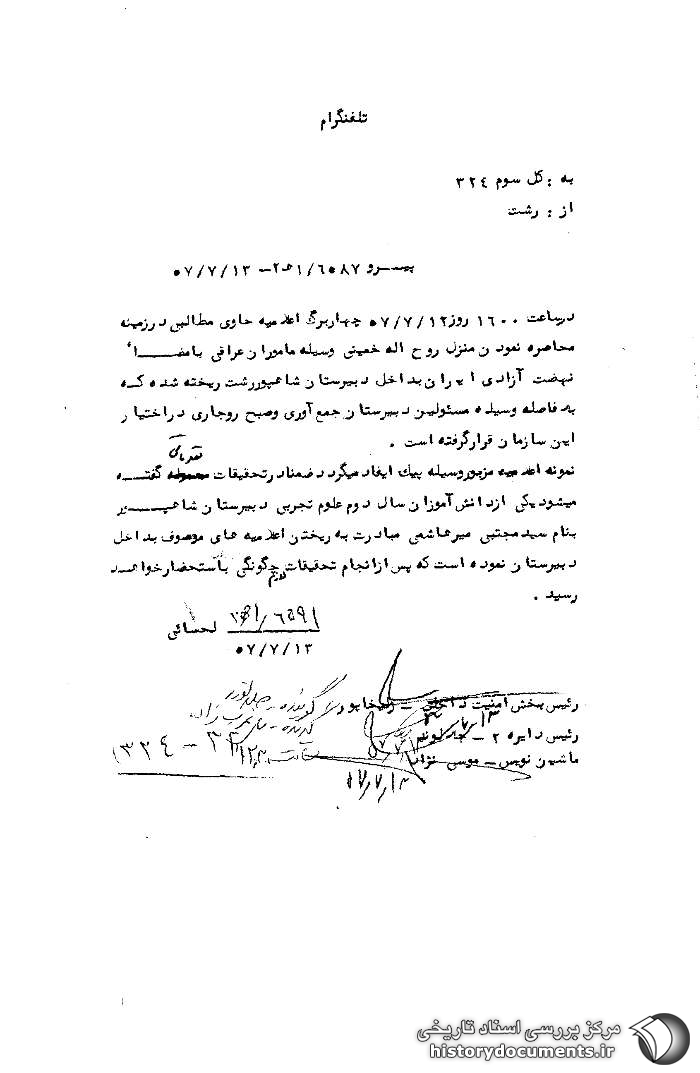 تلفنگرام
به : کل سوم ٣٢٤
از : رشت
پیرو ٦٥٨٧/ ٥٧/٧/١٣
درساعت ١٦٠٠ روز ٥٧/٧/١٢ چهاربرگ اعلامیه حاوی مطالبی درزمینه
محاصره نمودن منزل روح اله خمینی وسیله ماموران عراقی بامضاأ
نهضت آزادی ایران بداخل دبیرستان شاهپوررشت ریخته شده که
بلافاصله وسیله مسئولین دبیرستان جمع آوری وصبح روجاری دراختیار
این سازمان قرارگرفته است .
نمونه اعلامیه مزبوروسیله پیک ایفاد میگردد ضمنادرتحقیقات گفته
میشود یکی ازدانش آموزان سال دوم علوم تجربی دبیرستان شاهپور
بنام سیدمجتبی میرهاشمی مبادرت به ریختن اعلامیه های موصوف بداخل
دبیرستان نموده است که پس ازانجام تحقیقات لازم چگونگی باستحضارخواهد
رسید .
٦٥٩١/ لحسائی
٥٧/٧/١٣
رئیس بخش امنیت داخلی –
گوینده –
٥٧/٧/١٣
رئیس دایره ٢ –
گیرنده –
ماشین نویس – موسی نژاد
ساعت
٣٢٤ –
٥٧/٧/١٣
مرکز بررسی اسناد تاریخی
historydocuments.ir